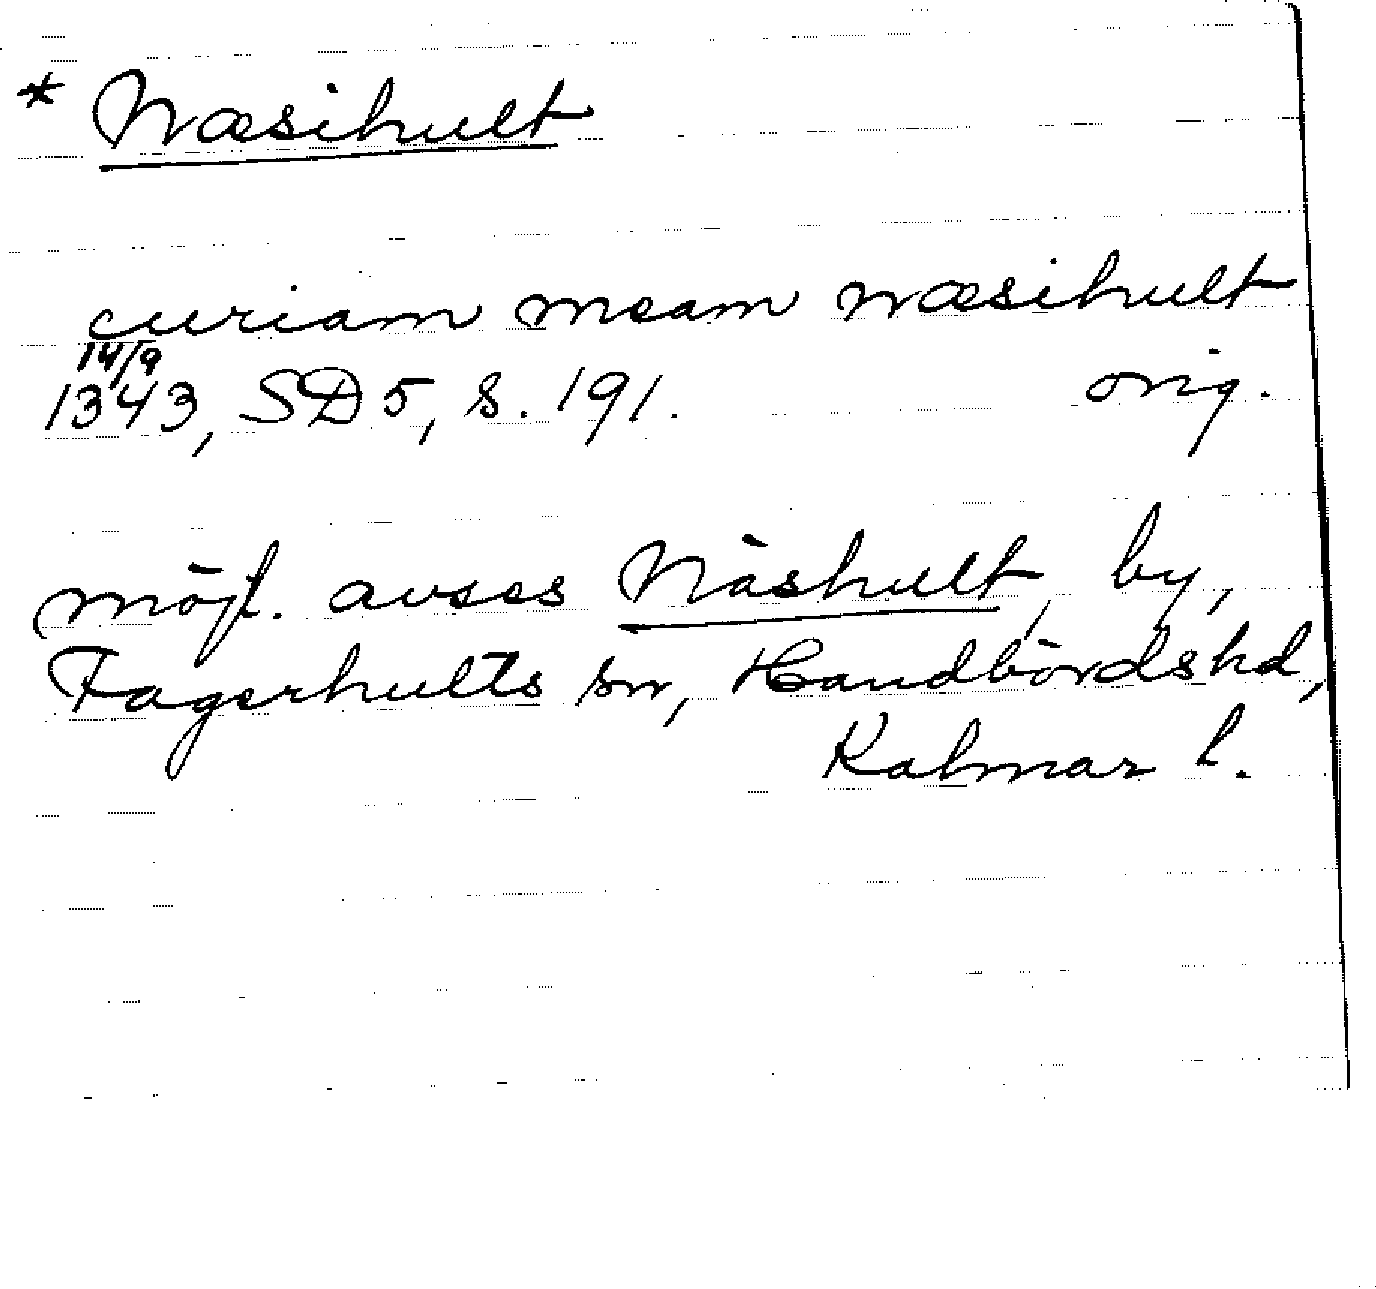 * Næsihult
curiam meam næsihult
14/9
1343, SD 5, s. 191. orig.
möjl. avses Näshult, by,
Fagerhults sn, Handbörds hd,
Kalmar l.